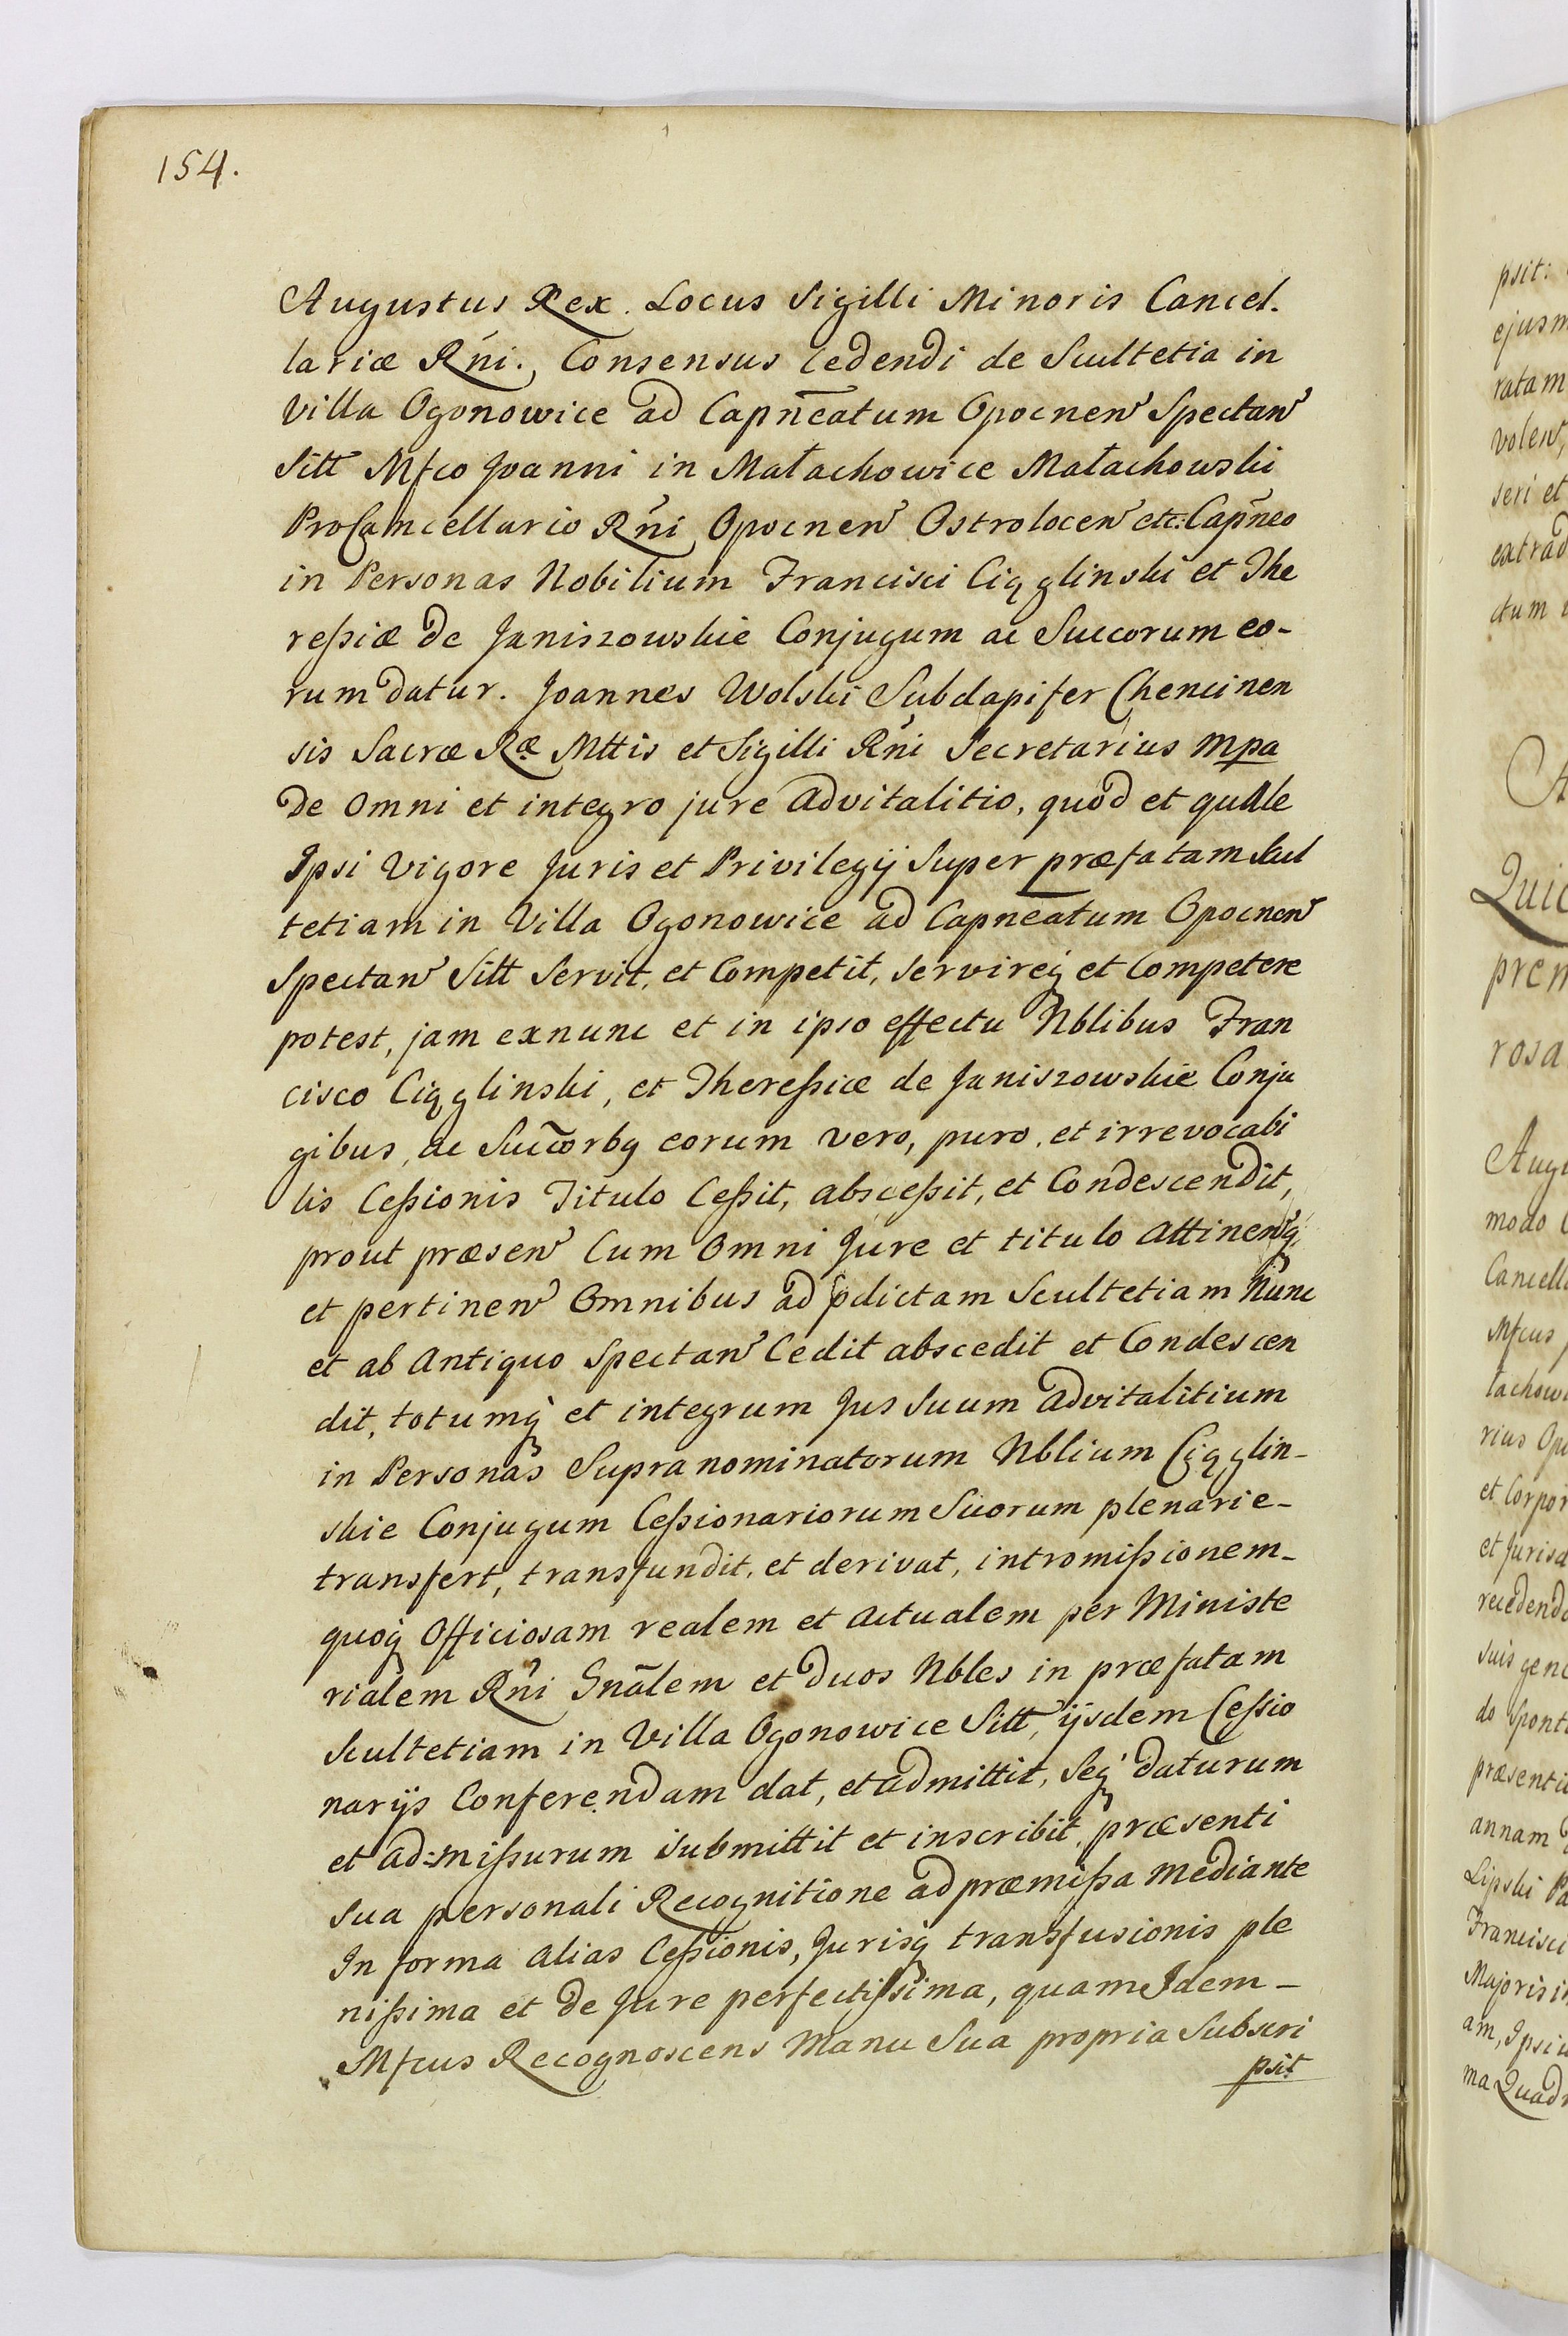 154.
Augustus Rex. Locus Sigilli Minoris Cancel.
lariæ Rńi., Consensus cedendi de Scultetia in
Villa Ogonowice ad Capñeatum Opocnen̄ Spectan̄
Sitt Mfco Joanni in Małachowice Małachowski
ProCancellario Rńi Opocnen̄ Ostrolocen̄ etc. Capñeo
in Personas Nobilium Francisci Ciąglinski et The
reſsiæ de Janiszowskie Conjugum ac Succorum eo-
rum datur. Joannes Wolski Subdapifer Chencinen
sis Sacræ Ræ Mttis et Sigilli Rńi Secretarius mpa
De Omni et integro jure advitalitio, quod et quale
Ipsi Vigore Juris et Privilegij Super præfatam Scul
tetiam in Villa Ogonowice ad Capneatum Opocnen̄
Spectan̄ Sitt Servit, et Competit, servireq́ et Competere
potest, jam exnunc et in ipso effectu Nblibus Fran
cisco Ciąglinski, et Thereſsiæ de Janiszowskie Conju
gibus, ac Succ̃orbq eorum vero, puro, et irrevocabi
lis Ceſsionis Titulo Ceſsit, absceſsit, et Condescendit,
prout præsen̄ Cum Omni Jure et titulo attinen̄q,
et pertinen̄ Omnibus ad pdictam Scultetiam Nunc
et ab Antiquo Spectan̄ Cedit abscedit et Condescen
dit, totumq́ et integrum Jus Suum advitalitium
in Personas Supranominatorum Nblium Ciąglin-
skie Conjugum Ceſsionariorum Suorum plenarie-
transfert, transfundit, et derivat, intromiſsionem-
quoq́ Officiosam realem et actualem per Ministe
rialem Rńi Gnãlem et duos Nbles in præfatam
Scultetiam in Villa Ogonowice Sitt, ijsdem Ceſsio
narijs Conferendam dat, et admittit, Seq́ daturum
et ad=miſsurum submittit et inscribit, præsenti
sua personali Recognitione ad præmiſsa mediante
In forma alias Ceſsionis, Jurisq́ transfusionis ple
niſsima et de Jure perfectiſsima, quam Idem-
Mfcus Recognoscens Manu Sua propria Subscri
psit
psit:
volen̄,
seri et
extrad
ctum
Quic
prem
rosa
modo
Mfcus
et Corpor
et Jurisd
recedend
suis gene
annam
Lipski Pa
Francisci
Majoris
ma Quadr